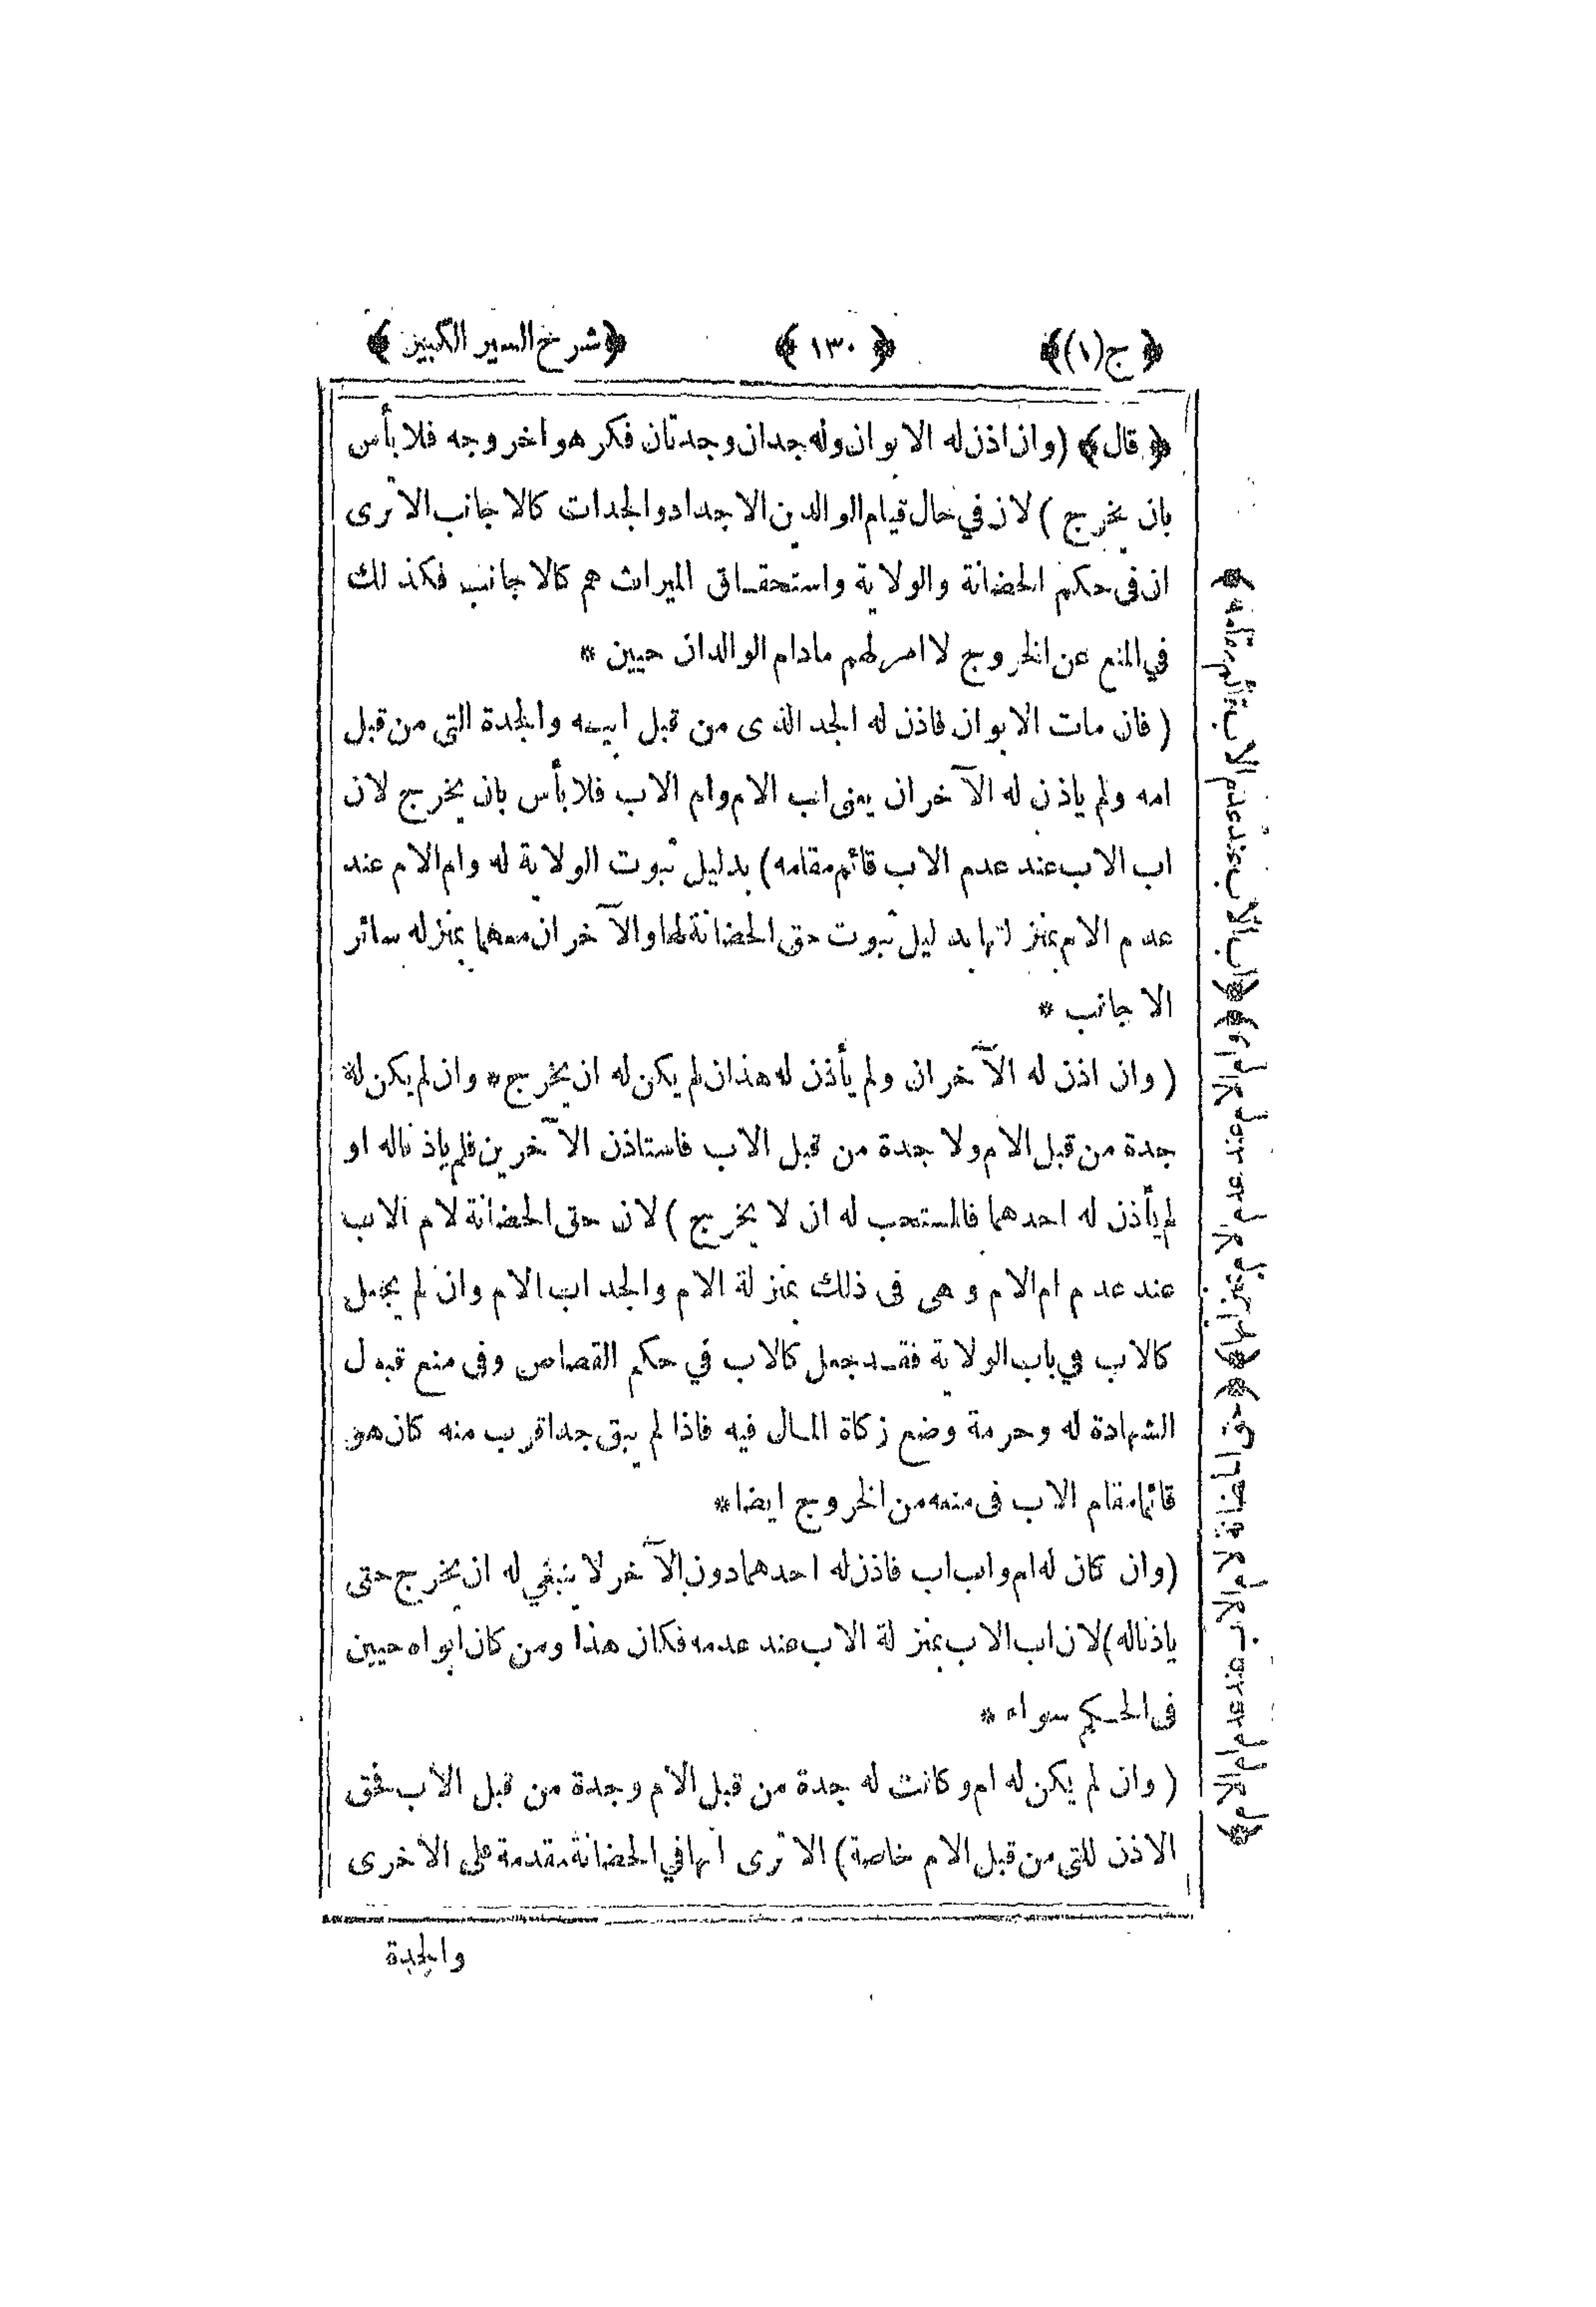 ﴿ ج(١)﴾ ﴿ ١٣٠ ﴾ ﴿شرح السير الكبير﴾
﴿ قال﴾ (وان اذن له الابوان وله جدان وجدتان فكرهوا خروجه فلا بأس
بان يخرج ) لان في حال قيام الوالدين الاجداد والجدات كالاجانب الا ترى
ان فى حكم الحضانة والولاية واستحقاق الميراث هم كالاجانب فكذلك
في المنع عن الخروج لا امر لهم مادام الوالدان حيين *
( فان مات الابوان فاذن له الجد الذى من قبل ابيه والجدة التى من قبل
امه ولم ياذن له الآخران يعنى اب الام وام الاب فلا بأس بان يخرج لان
اب الاب عند عدم الاب قائم مقامه) بدليل ثبوت الولاية له وام الام عند
عدم الام بمنزلتها بدليل ثبوت حق الحضانة لها والآخران معهما بمنزله سائر
الاجانب *
( وان اذن له الآخران ولم يأذن له هذان لم يكن له ان يخرج * وان لم يكن له
جدة من قبل الام ولا جدة من قبل الاب فاستاذن الآخرين فلم ياذناله او
لم يأذن له احدهما فالمستحب له ان لا يخرج ) لان حق الحضانة لام الاب
عند عدم ام الام وهى فى ذلك بمنزلة الام والجد اب الام وان لم يجعل
كالاب في باب الولاية فقد جعل كالاب في حكم القصاص وفى منع قبول
الشهادة له وحرمة وضع زكاة المال فيه فاذا لم يبق جد اقرب منه كان هو
قائما مقام الاب فى منعه من الخروج ايضا *
(وان كان له ام واب اب فاذن له احدهما دون الآخر لا ينبغي له ان يخرج حتى
ياذناله) لان اب الاب بمنزلة الاب عند عدمه فكان هذا ومن كان ابواه حيين
فى الحكم سواء *
( وان لم يكن له ام وكانت له جدة من قبل الام وجدة من قبل الاب فحق
الاذن للتى من قبل الام خاصة) الا ترى انها في الحضانة مقدمة على الاخرى
والجدة
﴿اب الاب عند عدم الاب قائم مقامه﴾